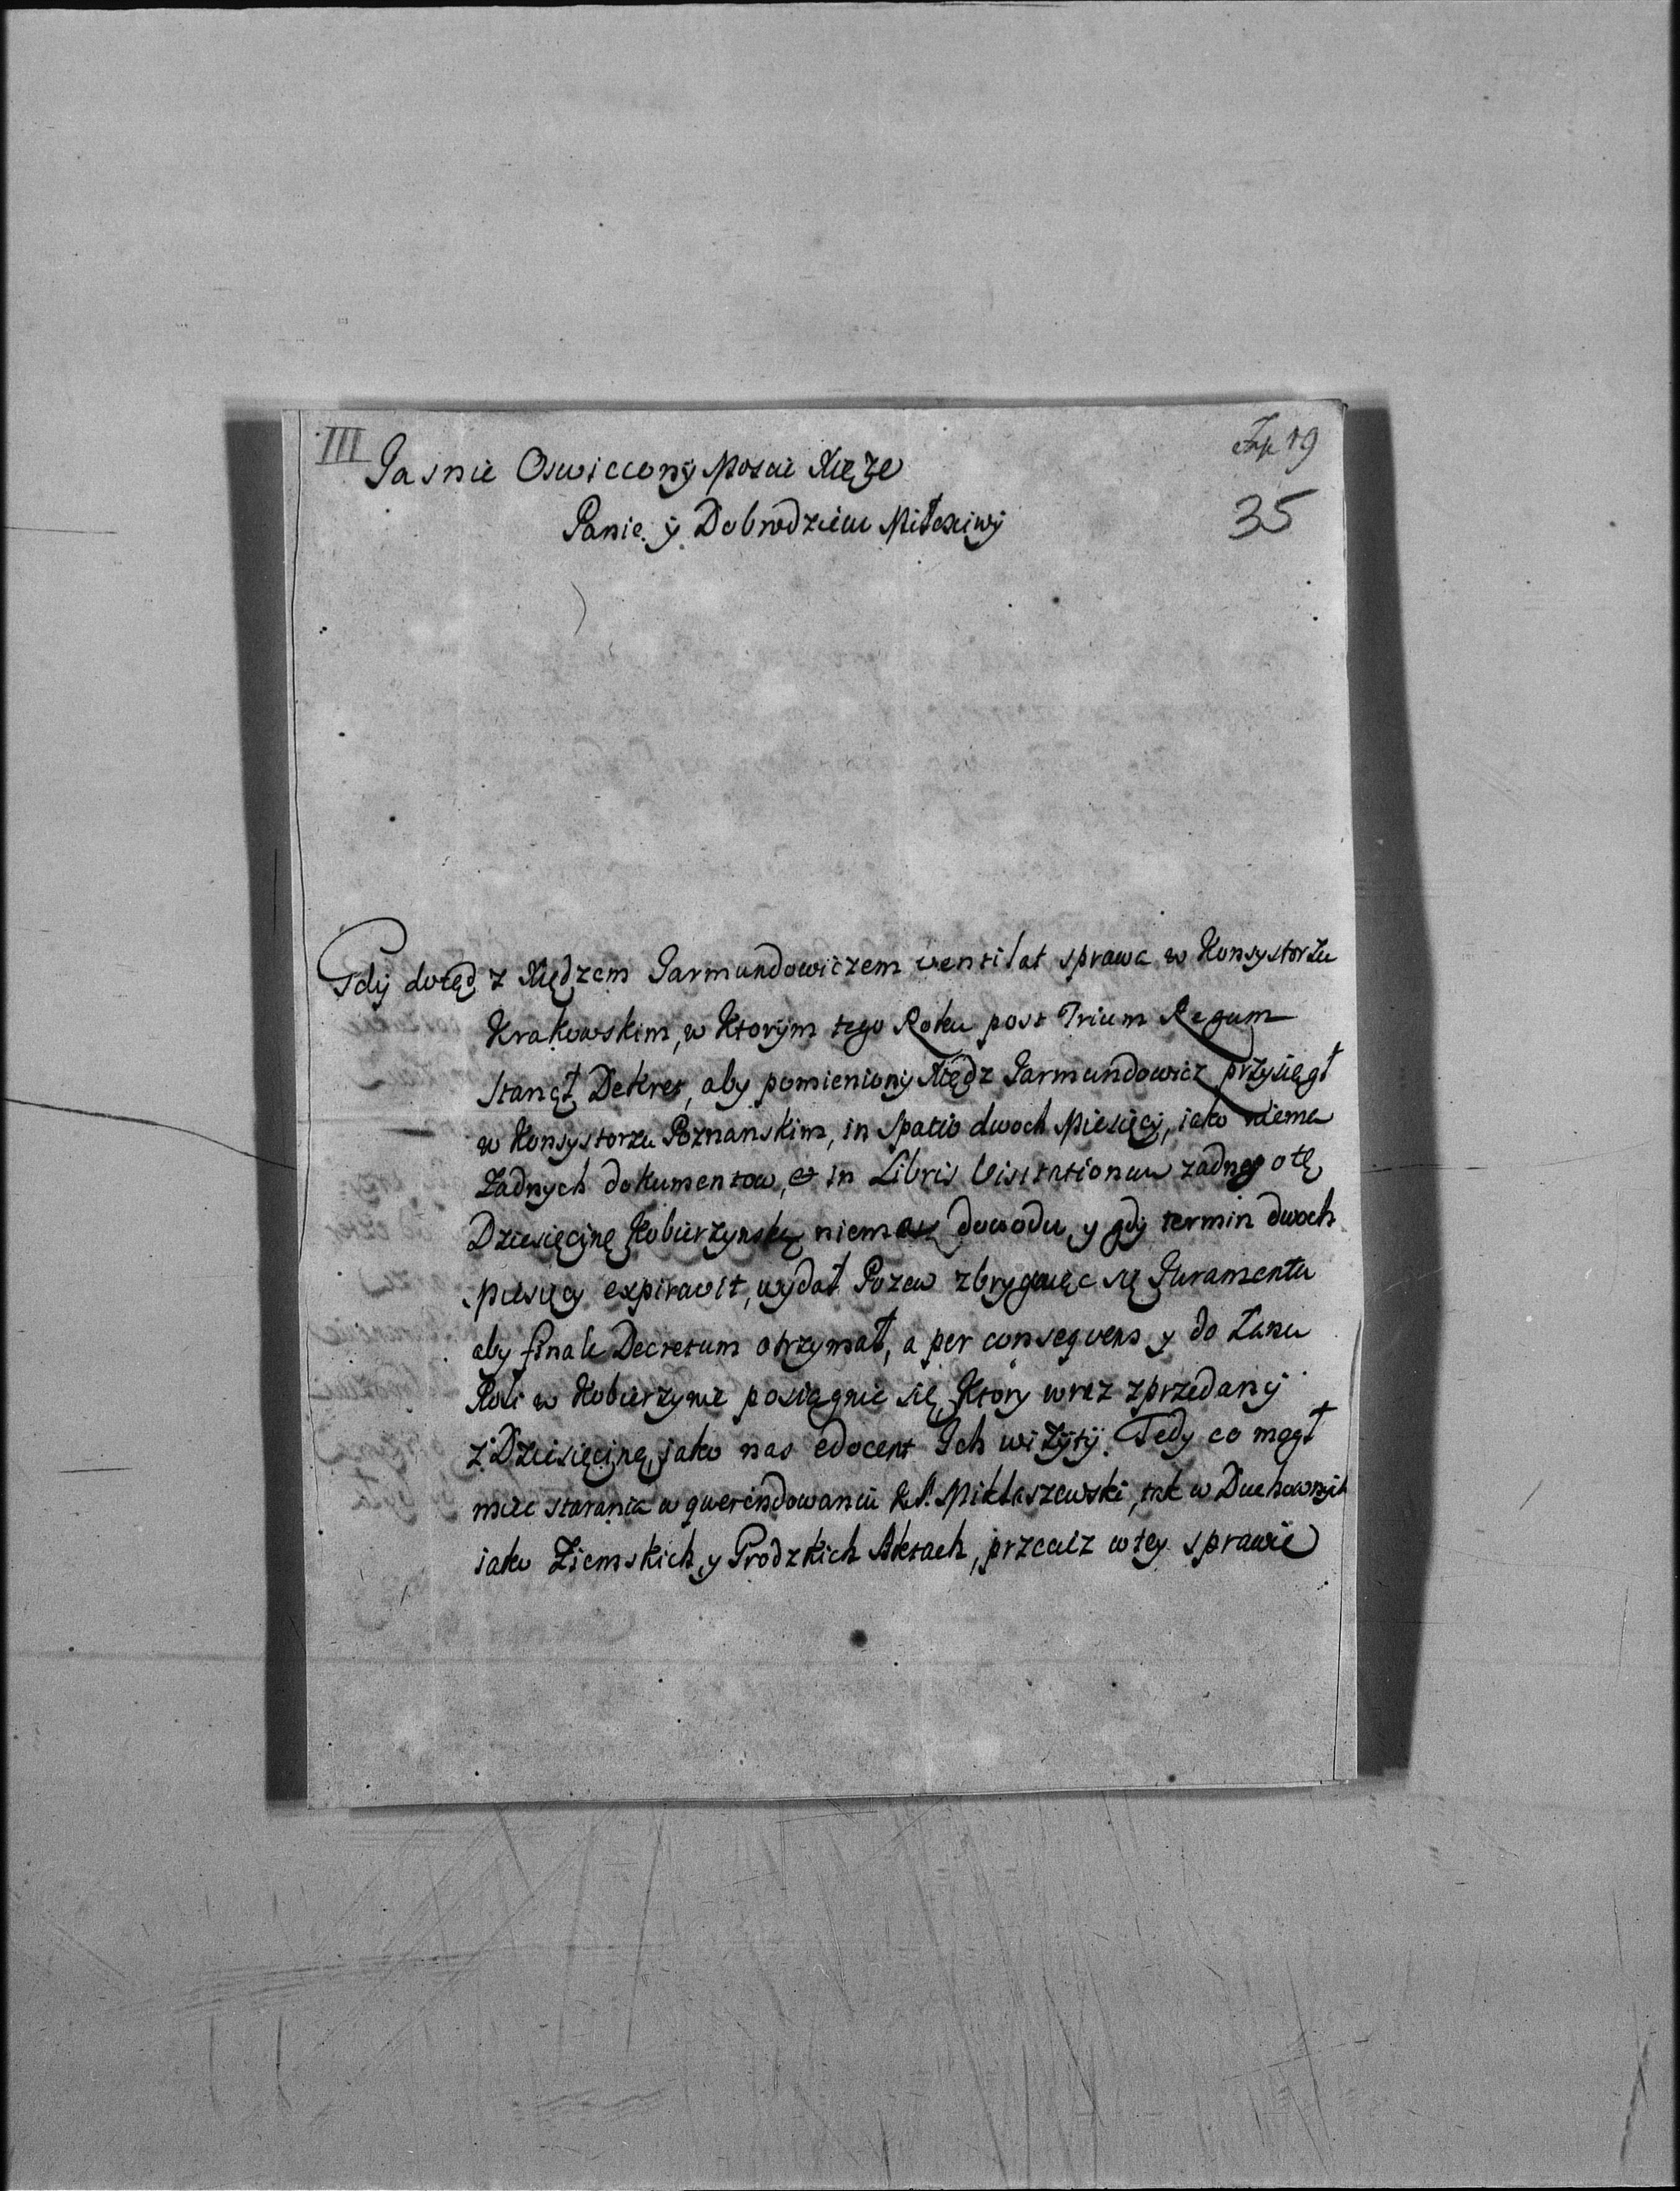 III
Jasnie Oswiecony Mosci Xięże
Panie y Dobrodzieiu Miłosciwy
19
35
Gdy dotąd z Xiędzem Jarmundowiczem ventilat sprawa w Konsystorzu
Krakowskim, w Ktorym tego Roku post Trium Regum
stanął Dekret, aby pomieniony Xiądz Jarmundowicz przysiągł
w Konsystorzu Poznanskim, in spatio dwoch Miesięcy, iako niema
żadnych dokumentow, et in Libris Visitationum zadnego otę
Dziesięcinę Kobierzynską niemasz dowodu, y gdy termin dwoch
Miesięcy expiravit, wydał Pozew zbryguiąc się Juramentu
aby finale Decretum otrzymał, a per conseqvens y do Łanu
Roli w Kobierzynie posiągnie się, Ktory wraz zprzedany
z Dziesięciną, jako nas edocent Jch wiżyty. Tedy co mógł
miec starania w qwerendowaniu Miktaszewski, tak w Duchownych
iako Ziemskich, y Grodzkich Aktach, przecież wtey sprawie